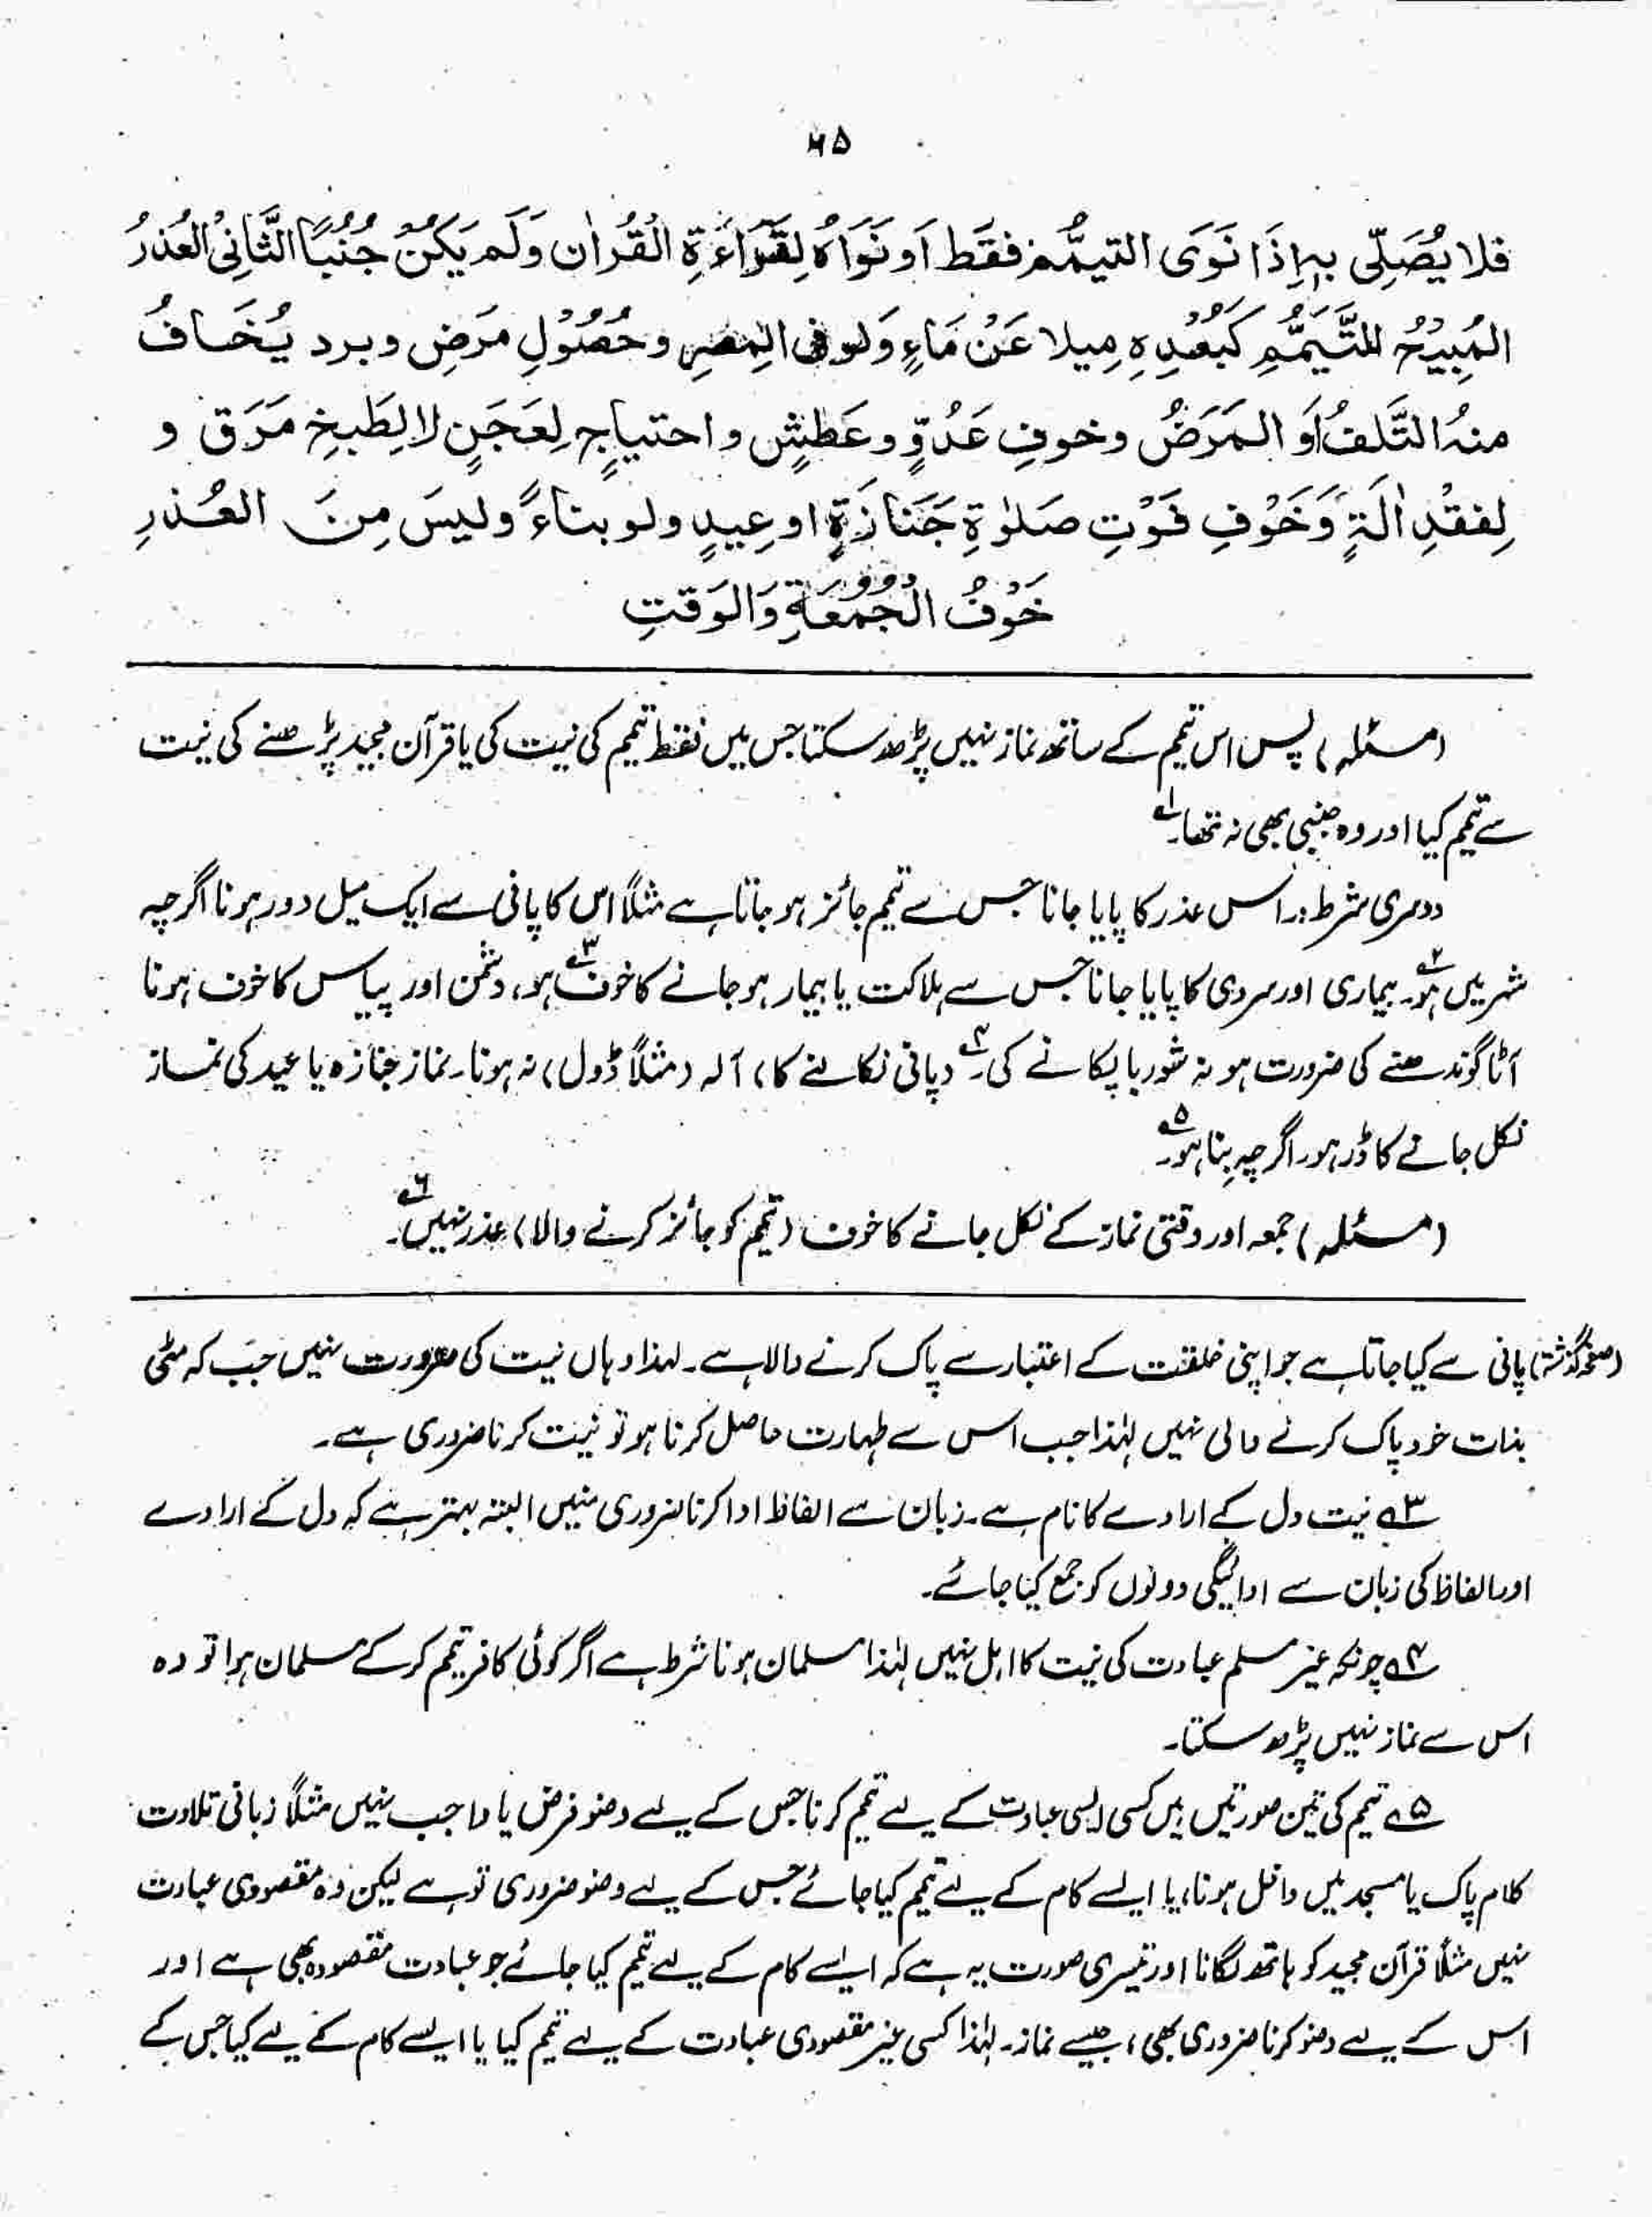 ۶۵
فلا يُصَلِّى بہٖ اِذَا نَوَى التيمُّم فقَط اَو نَوَاهُ لِقَرَاءَةِ الْقُراٰن وَلَم يَكُنْ جُنُبًا الثَّانِىْ العُذرُ
المُبِيْحُ للتَّيَمُّمِ كَبُعْدِهٖ مِيلا عَنْ مَاءٍ وَلو فى المِصرِ وحُصُوْلِ مَرَضٍ وبرد يُخَافُ
منهُ التَّلفُ اَو المَرَضُ وخوفِ عَدُوٍّ وعَطَشٍ واحتياجٍ لِعَجَنٍ لا لِطَبخِ مَرَق و
لِفقْدِ اٰلَةٍ وَخَوْفِ فَوْتِ صَلٰوةِ جَنَازَةٍ او عِيدٍ ولو بناءً وليسَ مِنَ العُذرِ
خَوْفُ الْجُمُعَةِ وَالوَقتِ
(مسئلہ) پس اس تیمم کے ساتھ نماز نہیں پڑھ سکتا جس میں فقط تیمم کی نیت کی یا قرآن مجید پڑھنے کی نیت
سے تیمم کیا اور وہ جنبی بھی نہ تھا۔ ۱؎
دوسری شرط:۔ اس عذر کا پایا جانا جس سے تیمم جائز ہو جاتا ہے مثلاً اس کا پانی سے ایک میل دور ہونا اگرچہ
شہر میں ہو۔ ۲؎ بیماری اور سردی کا پایا جانا جس سے ہلاکت یا بیمار ہو جانے کا خوف ۳؎ ہو، دشمن اور پیاس کا خوف ہونا
آٹا گوندھنے کی ضرورت ہو نہ شوربا پکانے کی۔ ۴؎ (پانی نکالنے کا) آلہ (مثلاً ڈول) نہ ہونا۔ نماز جنازہ یا عید کی نماز
نکل جانے کا ڈر ہو۔ اگرچہ بِنا ہو۔ ۵؎
(مسئلہ) جمعہ اور وقتی نماز کے نکل جانے کا خوف (تیمم کو جائز کرنے والا) عذر نہیں۔ ۶؎
(صفحہ گذشتہ) پانی سے کیا جاتا ہے جو اپنی خلقت کے اعتبار سے پاک کرنے والا ہے۔ لہٰذا وہاں نیت کی ضرورت نہیں جب کہ مٹی
بذات خود پاک کرنے والی نہیں لہٰذا جب اس سے طہارت حاصل کرنا ہو تو نیت کرنا ضروری ہے۔
۳؎ نیت دل کے ارادے کا نام ہے۔ زبان سے الفاظ ادا کرنا ضروری نہیں البتہ بہتر ہے کہ دل کے ارادے
اور الفاظ کی زبان سے ادائیگی دونوں کو جمع کیا جائے۔
۴؎ چونکہ غیر مسلم عبادت کی نیت کا اہل نہیں لہٰذا مسلمان ہونا شرط ہے اگر کوئی کافر تیمم کر کے مسلمان ہوا تو وہ
اس سے نماز نہیں پڑھ سکتا۔
۵؎ تیمم کی تین صورتیں ہیں کسی ایسی عبادت کے لیے تیمم کرنا جس کے لیے وضو فرض یا واجب نہیں مثلاً زبانی تلاوت
کلام پاک یا مسجد میں داخل ہونا، یا ایسے کام کے لیے تیمم کیا جائے جس کے لیے وضو ضروری تو ہے لیکن وہ مقصودی عبادت
نہیں مثلاً قرآن مجید کو ہاتھ لگانا اور تیسری صورت یہ ہے کہ ایسے کام کے لیے تیمم کیا جائے جو عبادت مقصودہ بھی ہے اور
اس کے لیے وضو کرنا ضروری بھی، جیسے نماز۔ لہٰذا کسی غیر مقصودی عبادت کے لیے تیمم کیا یا ایسے کام کے لیے کیا جس کے